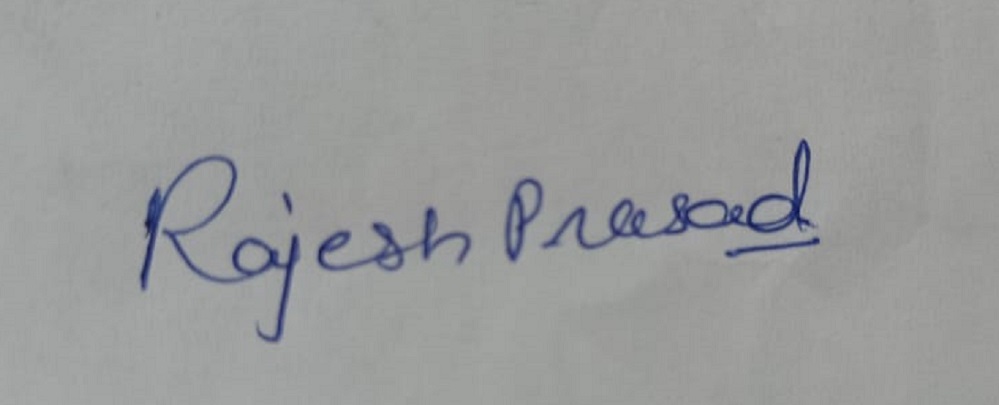 Rajesh Prasad